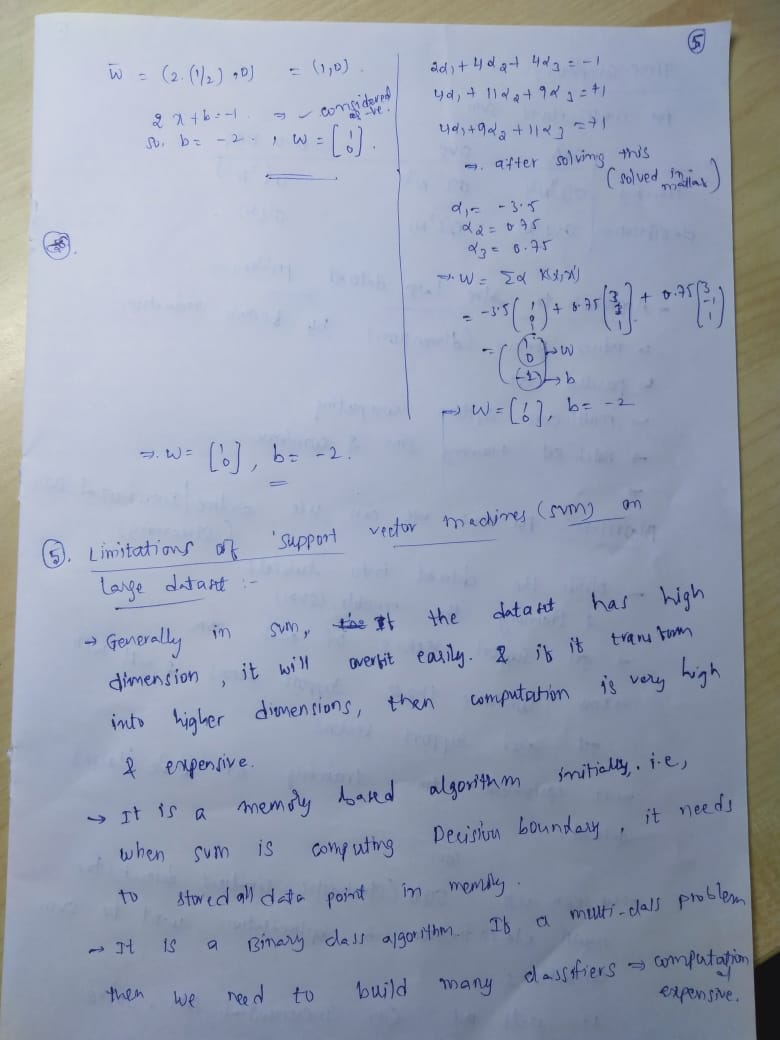 5
w̄ = (2.(1/2), 0) = (1,0).
2x+b=-1 ⇒ considered as -ve.
So, b= -2, w = [1 0].
2α₁+4α₂+4α₃ = -1
4α₁+11α₂+9α₃ = +1
4α₁+9α₂+11α₃ = +1
⇒ after solving this
(solved in matlab)
α₁ = -3.5
α₂ = 0.75
α₃ = 0.75
⇒ W = Σα
= -3.5(1 0 1) + 0.75[3 1 1] + 0.75[3 -1 1]
= (1 0 -2) → w → b
⇒ W = [1 0], b = -2
⇒ W = [1 0], b = -2.
5. Limitations of Support vector machines (svm) on
large dataset :-
→ Generally in svm, If the dataset has high
dimension, it will overfit easily. & if it transform
into higher dimensions, then computation is very high
& expensive.
→ It is a memory based algorithm initially. i.e,
when svm is computing Decision boundary, it needs
to stored all data point in memory.
→ It is a Binary class algorithm. If a multi-class problem
then we need to build many classifiers ⇒ computation
expensive.